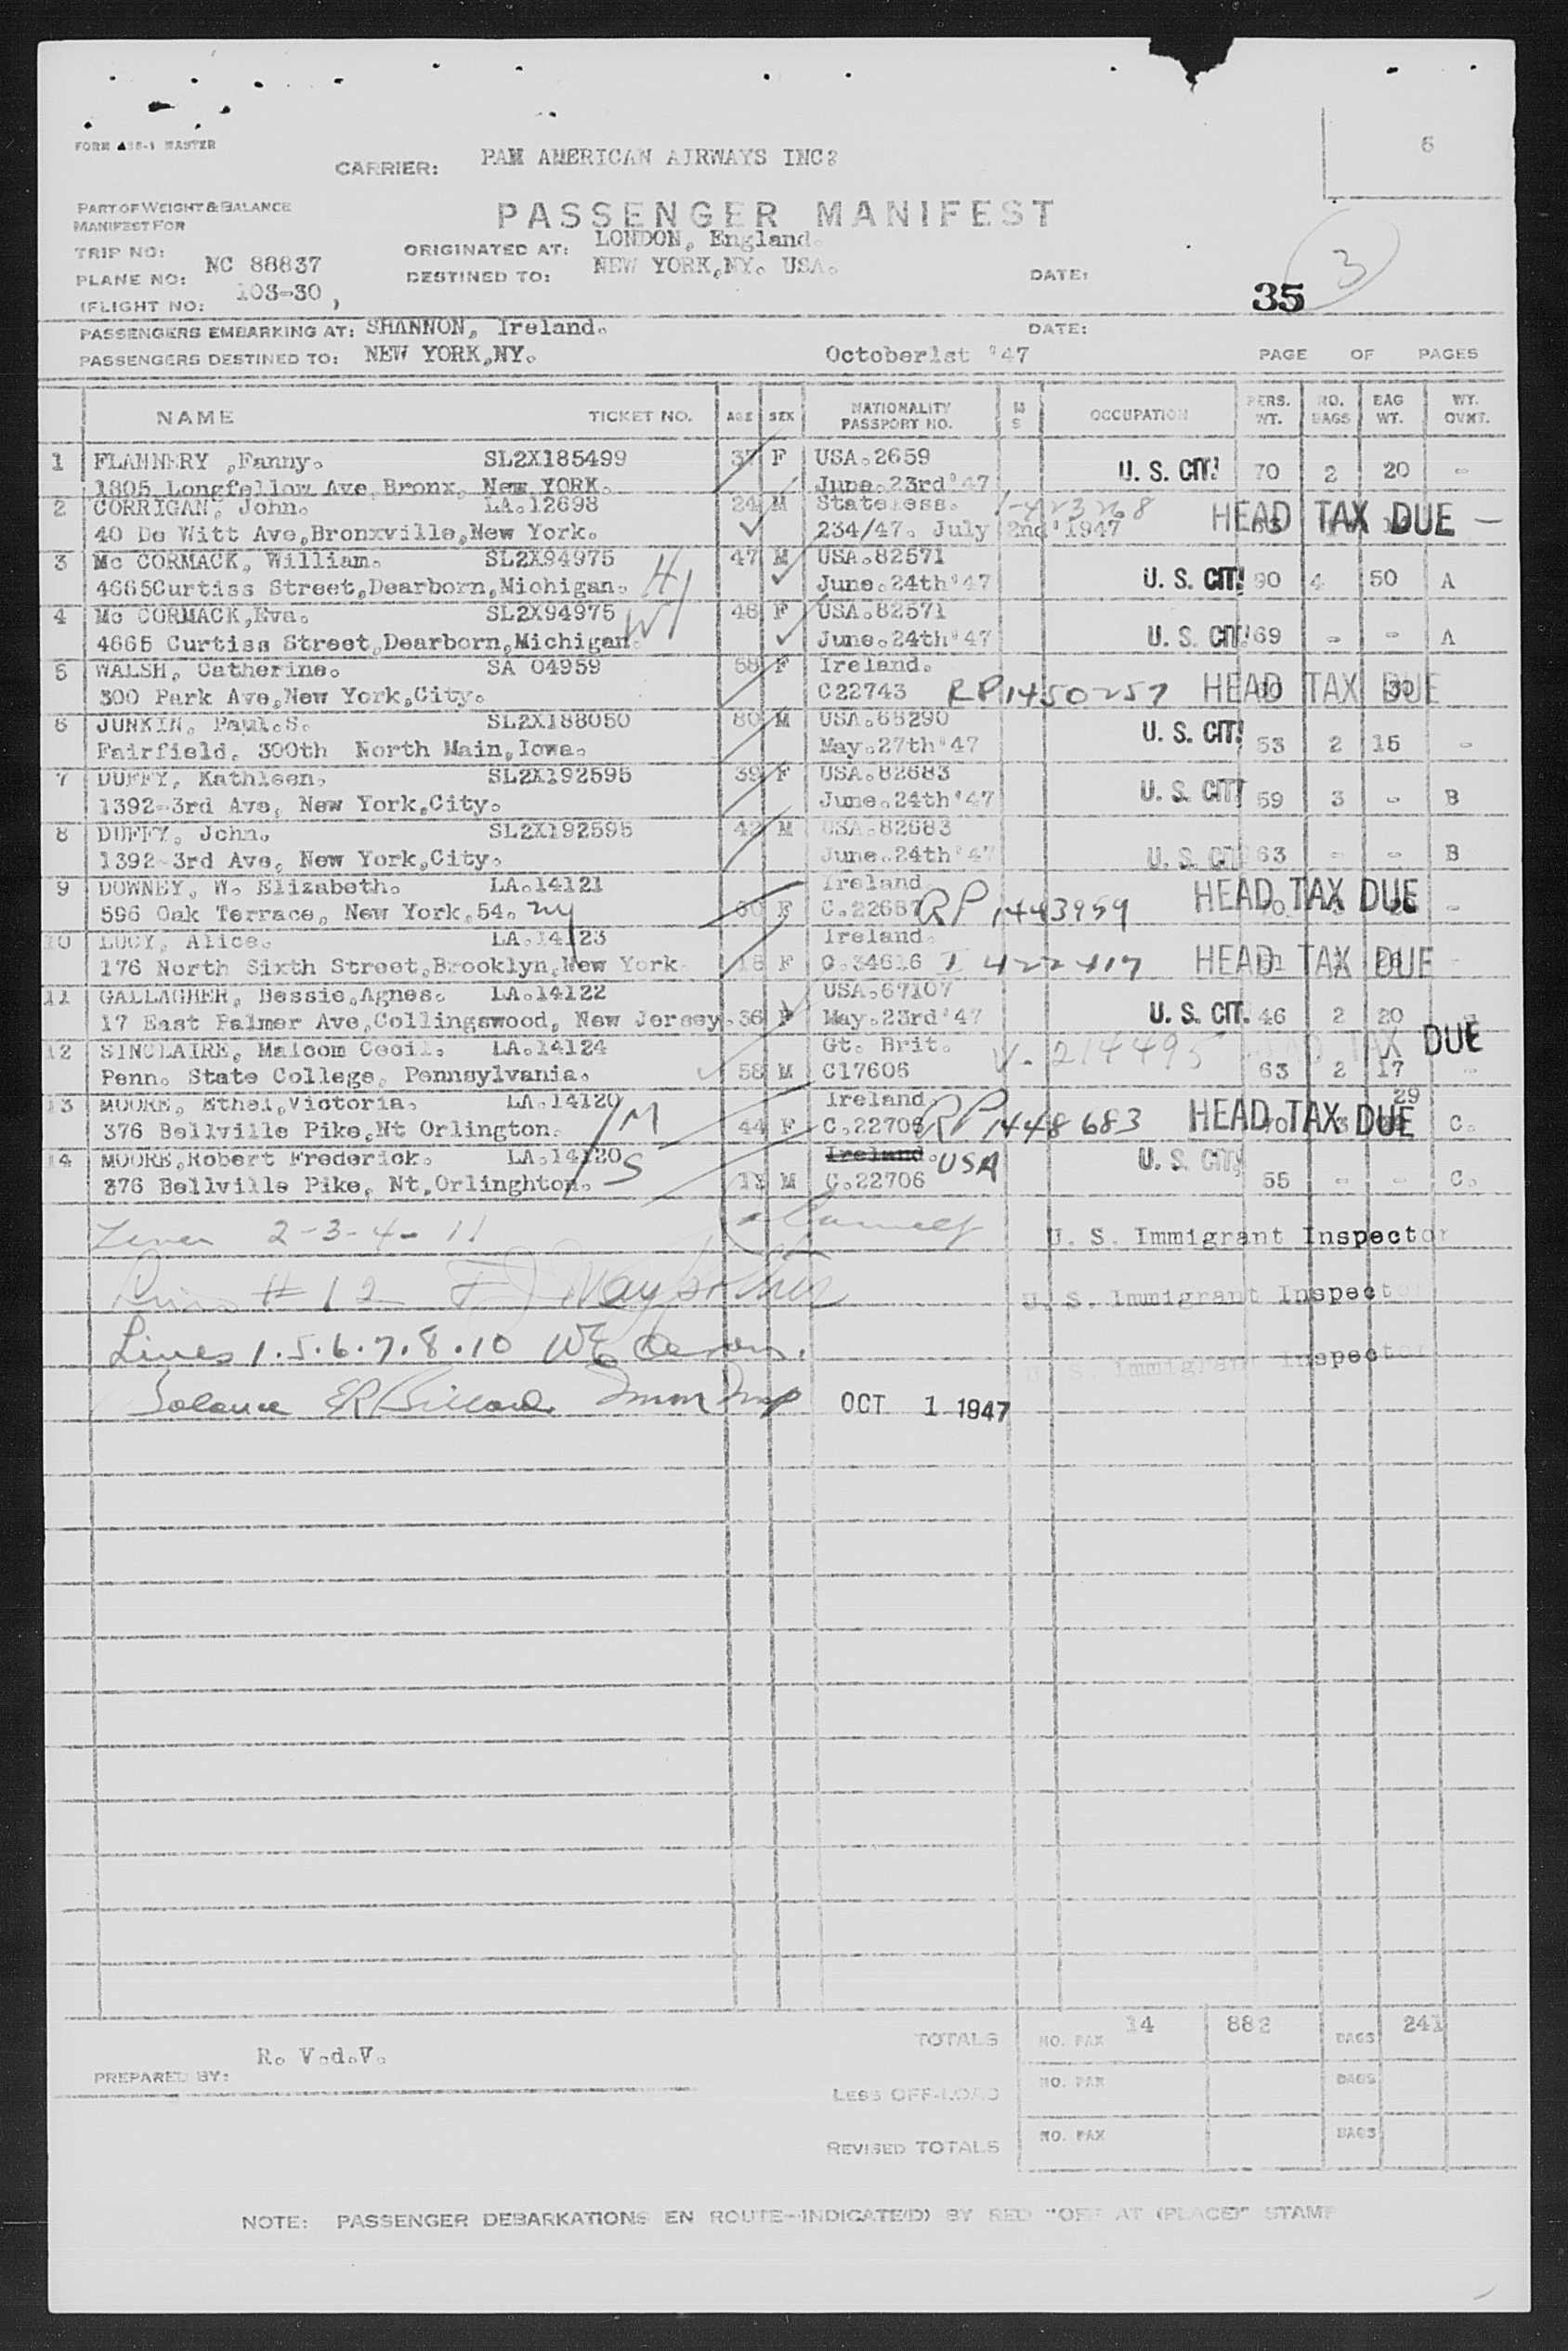 FORM MASTER
6
CARRIER: PAN AMERICAN AIRWAYS INC
PART OF WEIGHT & BALANCE
MANIFEST FOR
PASSENGER MANIFEST
TRIP NO:
ORIGINATED AT: LONDON, England.
PLANE NO: NC 88837
DESTINED TO: NEW YORK,NY. USA.
DATE:
35 3
(FLIGHT NO: 103-30 )
PASSENGERS EMBARKING AT: SHANNON, Ireland. DATE:
PASSENGERS DESTINED TO: NEW YORK,NY. October1st '47 PAGE OF PAGES
NAME TICKET NO. AGE SEX NATIONALITY PASSPORT NO. M S OCCUPATION PERS. WT. NO. BAGS BAG WT. WT. OVNT.
1 FLANNERY ,Fanny. SL2X185499 37 F USA.2659 U. S. CIT. 70 2 20 -
1805 Longfellow Ave Bronx, New YORK. June.23rd'47
2 CORRIGAN, John. LA.12698 24 M Stateless. HEAD TAX DUE -
40 De Witt Ave,Bronxville,New York. 234/47. July 2nd'1947
3 Mc CORMACK, William. SL2X94975 47 M USA.82571 H
4665Curtiss Street,Dearborn,Michigan. June.24th'47 U. S. CIT. 90 4 50 A
4 Mc CORMACK,Eva. SL2X94975 46 F USA.82571 W
4665 Curtiss Street,Dearborn,Michigan. June.24th'47 U. S. CIT. 69 - - A
5 WALSH, Catherine. SA 04959 58 F Ireland.
300 Park Ave,New York,City. C22743 RP1450257 HEAD TAX DUE
6 JUNKIN, Paul.S. SL2X188050 80 M USA.65290 U. S. CIT.
Fairfield. 300th North Main,Iowa. May.27th'47 53 2 15 -
7 DUFFY, Kathleen. SL2X192595 39 F USA.82683
1392-3rd Ave, New York,City. June.24th'47 U. S. CIT. 59 3 - B
8 DUFFY, John. SL2X192595 42 M USA.82683
1392-3rd Ave, New York,City. June.24th'47 U. S. CIT. 63 - - B
9 DOWNEY, W. Elizabeth. LA.14121 Ireland
596 Oak Terrace, New York,54. NY 60 F C.22687 RP 1443959 HEAD TAX DUE -
10 LUCY, Alice. LA.14123 Ireland.
176 North Sixth Street,Brooklyn,New York 18 F C.34616 I 422417 HEAD TAX DUE -
11 GALLAGHER, Bessie,Agnes. LA.14122 USA.67107
17 East Palmer Ave,Collingswood, New Jersey.36 F May.23rd'47 U. S. CIT. 46 2 20
12 SINCLAIRE, Malcom Cecil. LA.14124 Gt. Brit. V-214495 TAX DUE
Penn. State College, Pennsylvania. 58 M C17606 63 2 17 -
13 MOORE, Ethel,Victoria. LA.14120 M Ireland. 29
376 Bellville Pike,Nt Orlington. 44 F C.22706 RP1448683 HEAD TAX DUE C.
14 MOORE,Robert Frederick. LA.14120 S Ireland. USA U. S. CIT.
376 Bellville Pike, Nt,Orlinghton. 13 M C.22706 55 - - C.
2-3-4-11 U. S. Immigrant Inspector
# 12 U. S. Immigrant Inspector
Lines 1.5.6.7.8.10 U. S. Immigrant Inspector
Balance OCT 1 1947
TOTALS NO. PAX 14 882 BAGS 241
PREPARED BY: R. V.d.V.
LESS OFF-LOAD NO. PAX BAGS
REVISED TOTALS NO. PAX BAGS
NOTE: PASSENGER DEBARKATIONS EN ROUTE--INDICATE(D) BY RED "OFF AT (PLACE)" STAMP